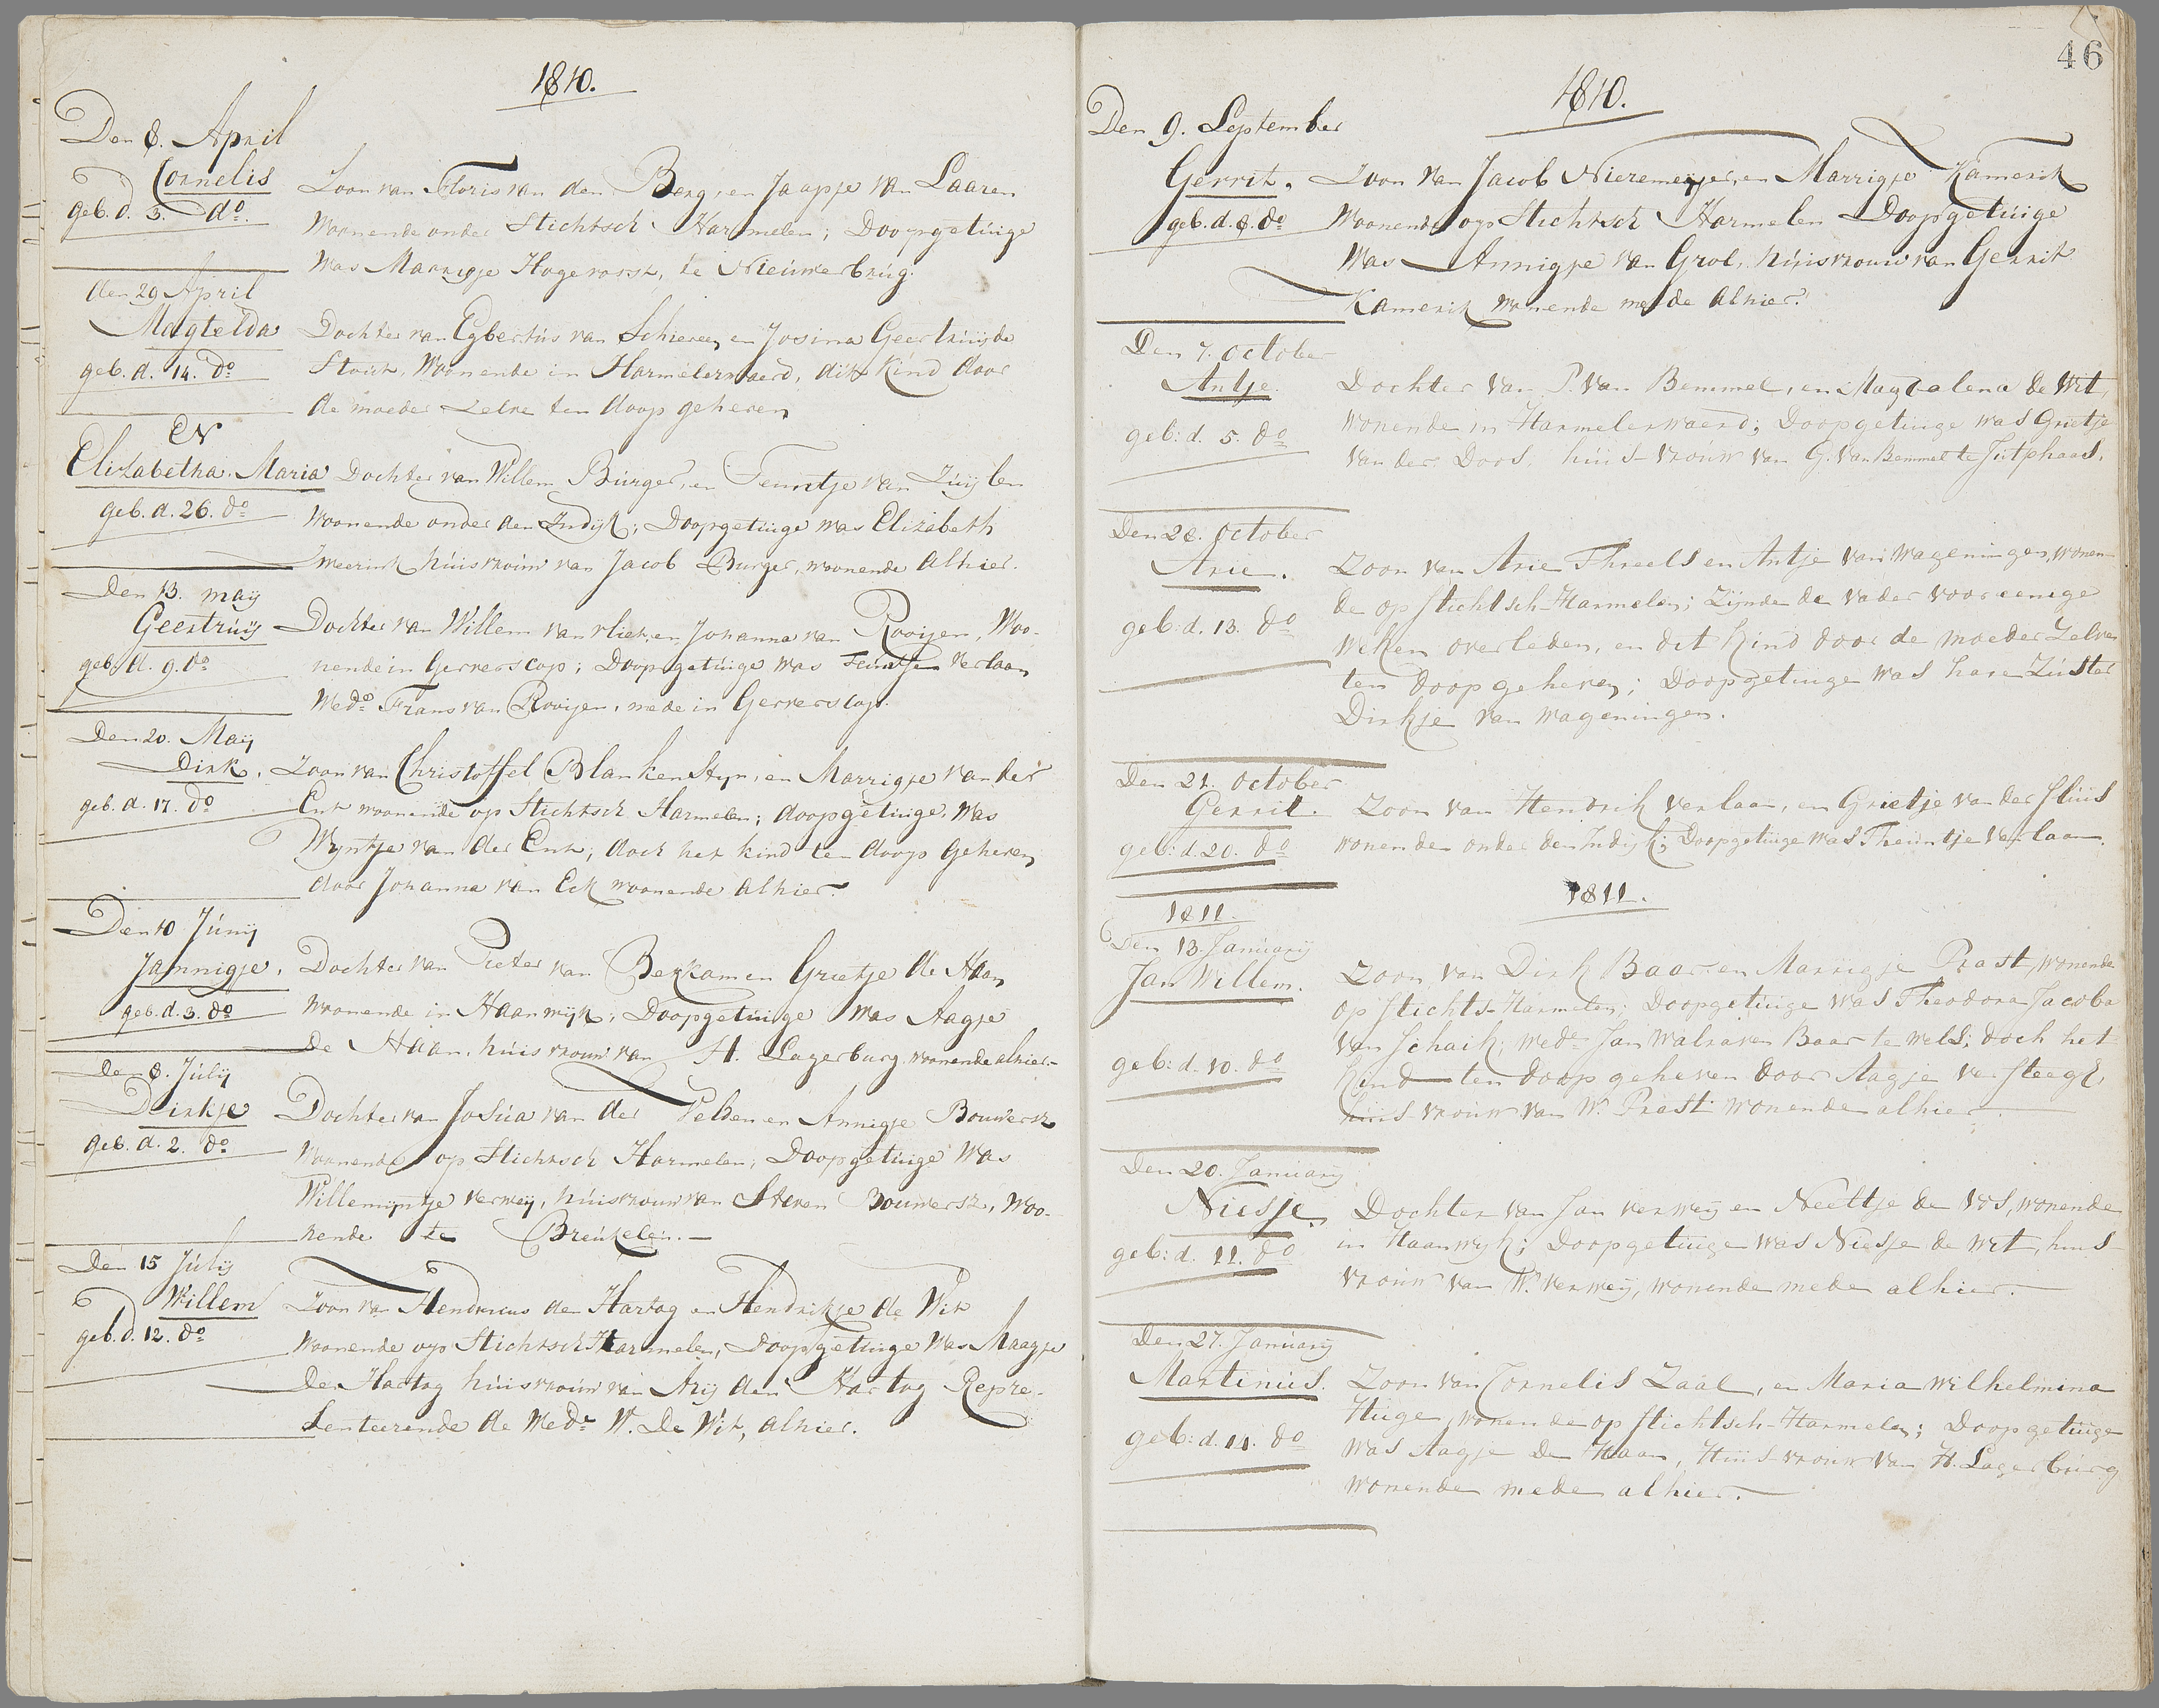 1810.
Den 8. April
Cornelis
geb. d. 3. do.
Zoon van Floris van den Berg, en Jaapje van Laaren
Woonende onder Stichtsch Harmelen; Doopgetuige
Was Marrigje Hogevorst, te Nieuwerbrug.
den 29 April
Magtelda
geb. d. 14. do
Dochter van Egbertus van Schieren, en Josina Geertruijda
Woonende in Harmelerwaerd, dit Kind door
de moeder Zelve ten doop geheven
en
Elizabetha Maria
geb. d. 26. do
Dochter van Willem Burger, en Teuntje van Zuijlen
Woonende onder den Indijk; Doopgetuige was Elizabeth
huisvrouw van Jacob Burger, woonende alhier.
Den 13. maij
Geertruij
geb. d. 9. do
Dochter van Willem van vliet, en Johanna van Rooijen, Woo-
nende in Gerverscop; Doopgetuige was Teuntje Verlaan
Wedo Frans van Rooijen, mede in Gerverscop.
Den 20. Maij
Dirk.
geb. d. 17. do
Zoon van Christoffel Blankenstyn, en Marrigje van der
Ent woonende op Stichtsch Harmelen; doopgetuige, Was
Wyntje van der Ent; doch het kind ten doop geheven
door Johanna van Eck woonende alhier.
Den 10 Junij
Jannigje.
geb. d. 3. do
Dochter van Pieter van Berkam en Grietje de Haan
Woonende in Haanwijk; Doopgetuige Was Aagje
De Haan, huisvrouw van H. Lagerburg woonende alhier.-
den 8. Julij
Dirkje
geb. d. 2. do
Dochter van Josua van der Velden en Annigje Bouwersz
Woonende op Stichtsch Harmelen; Doopgetuige Was
Willemijntje verweij, huisvrouw van Steven Bouwersz, Woo-
nende te Breukelen.-
Den 15 Julij
Willem
geb. d. 12. do
Zoon van Hendricus den Hartog en Hendrikje de Wit
Woonende op Stichtsch Harmelen, Doopgetuige Was Maagje
Den Hartog huisvrouw van Arij den Hartog Repre-
Senteerende de Wede W. De Wit, alhier.
46
1810.
Den 9. September
Gerrit.
geb. d. 8. do
Zoon van Jacob Nieremeijer, en Marrigje Kamerik
Woonende op Stichtsch Harmelen Doopgetuige
Was Annigje van Grol, huisvrouw van Gerrit
Kamerik wonende mede alhier.
Den 7. October
Antje.
geb: d. 5. do
Dochter van P. van Bemmel, en Magdalena de Wit,
wonende in Harmelerwaerd; Doopgetuige was Grietje
van der Doos, huis-vrouw van G. van Bemmel te Jutphaas.
Den 28. October
Arie.
geb: d. 13. do
Zoon van Arie Threels en Antje van Wageningen, wonen-
de op stichtsch-Harmelen; Zijnde de vader voor eenige
weken overleden, en dit kind door de moeder Zelve
ten doop geheven; Doopgetuige was hare Zuster
Dirkje van Wageningen.
Den 21. October
Gerrit.
geb: d. 20. do
Zoon van Hendrik verlaan, en Grietje van der Sluis
wonende onder den Indijk; Doopgetuige was Theuntje verlaan.
1811.
1811.
Den 13. January
Jan Willem.
geb: d. 10. do
Zoon van Dirk Baars en Marrigje Prast, wonende
op stichts-Harmelen; Doopgetuige was Theodora Jacoba
van Schaik, wede Jan Walraven Baar te wels; doch het
kind ten doop geheven door Aagje versteegt,
huis vrouw van W. Prast wonende alhier.
Den 20. January
Niesje.
geb: d. 11. do
Dochter van Jan verweij en Neeltje de Vos, wonende
in Haanwijk; Doopgetuige was Niesje de Wit, huis-
vrouw van W. verweij, wonende mede alhier.
Den 27. January
Martinus.
geb: d. 14. do
Zoon van Cornelis Zaal, en Maria Wilhelmina
Huge, wonende op stichtsch-Harmelen; Doopgetuige
was Aagje De Haan, Huis-vrouw van H. Lagerburg
wonende mede alhier.